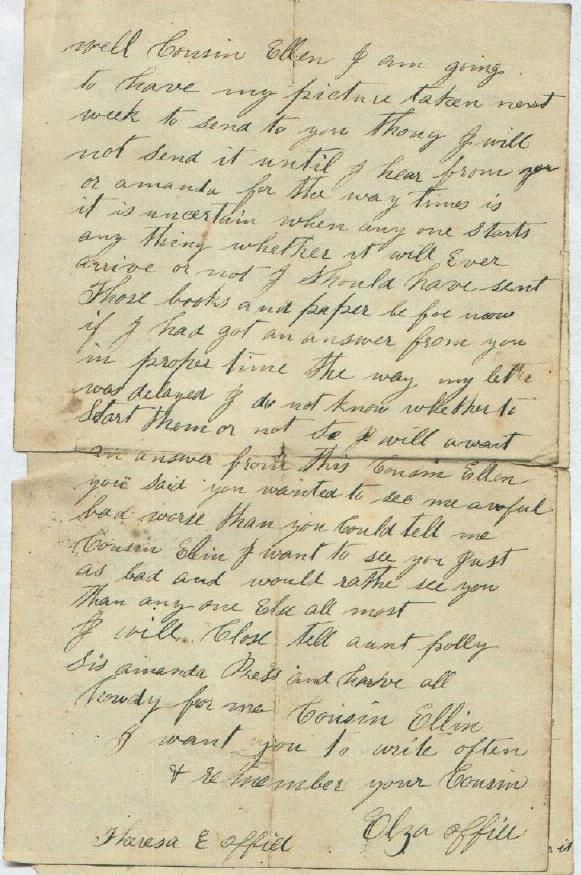 well Cousin Ellen I am going
to have my picture taken next
week to send to you thoug I will
not send it until I hear from you
or amanda for the way times is
it is uncertain when any one starts
any thing whether it will Ever
arrive or not I should have sent
Those books and paper be for now
if I had got an answer from you
in proper time the way my lettr
was delayed I do not know whether to
start them or not So I will await
an answer from this Cousin Ellen
you said you wanted to see me awful
bad worse than you Could tell me
Cousin Ellin I want to see you Just
as bad and would rathe see you
than any one Else all most
I will Close tell aunt polly
Sis amanda Press and all
howdy for me Cousin Ellin
I want you to write often
& remember your Cousin
Elza offill
Theresa E offill